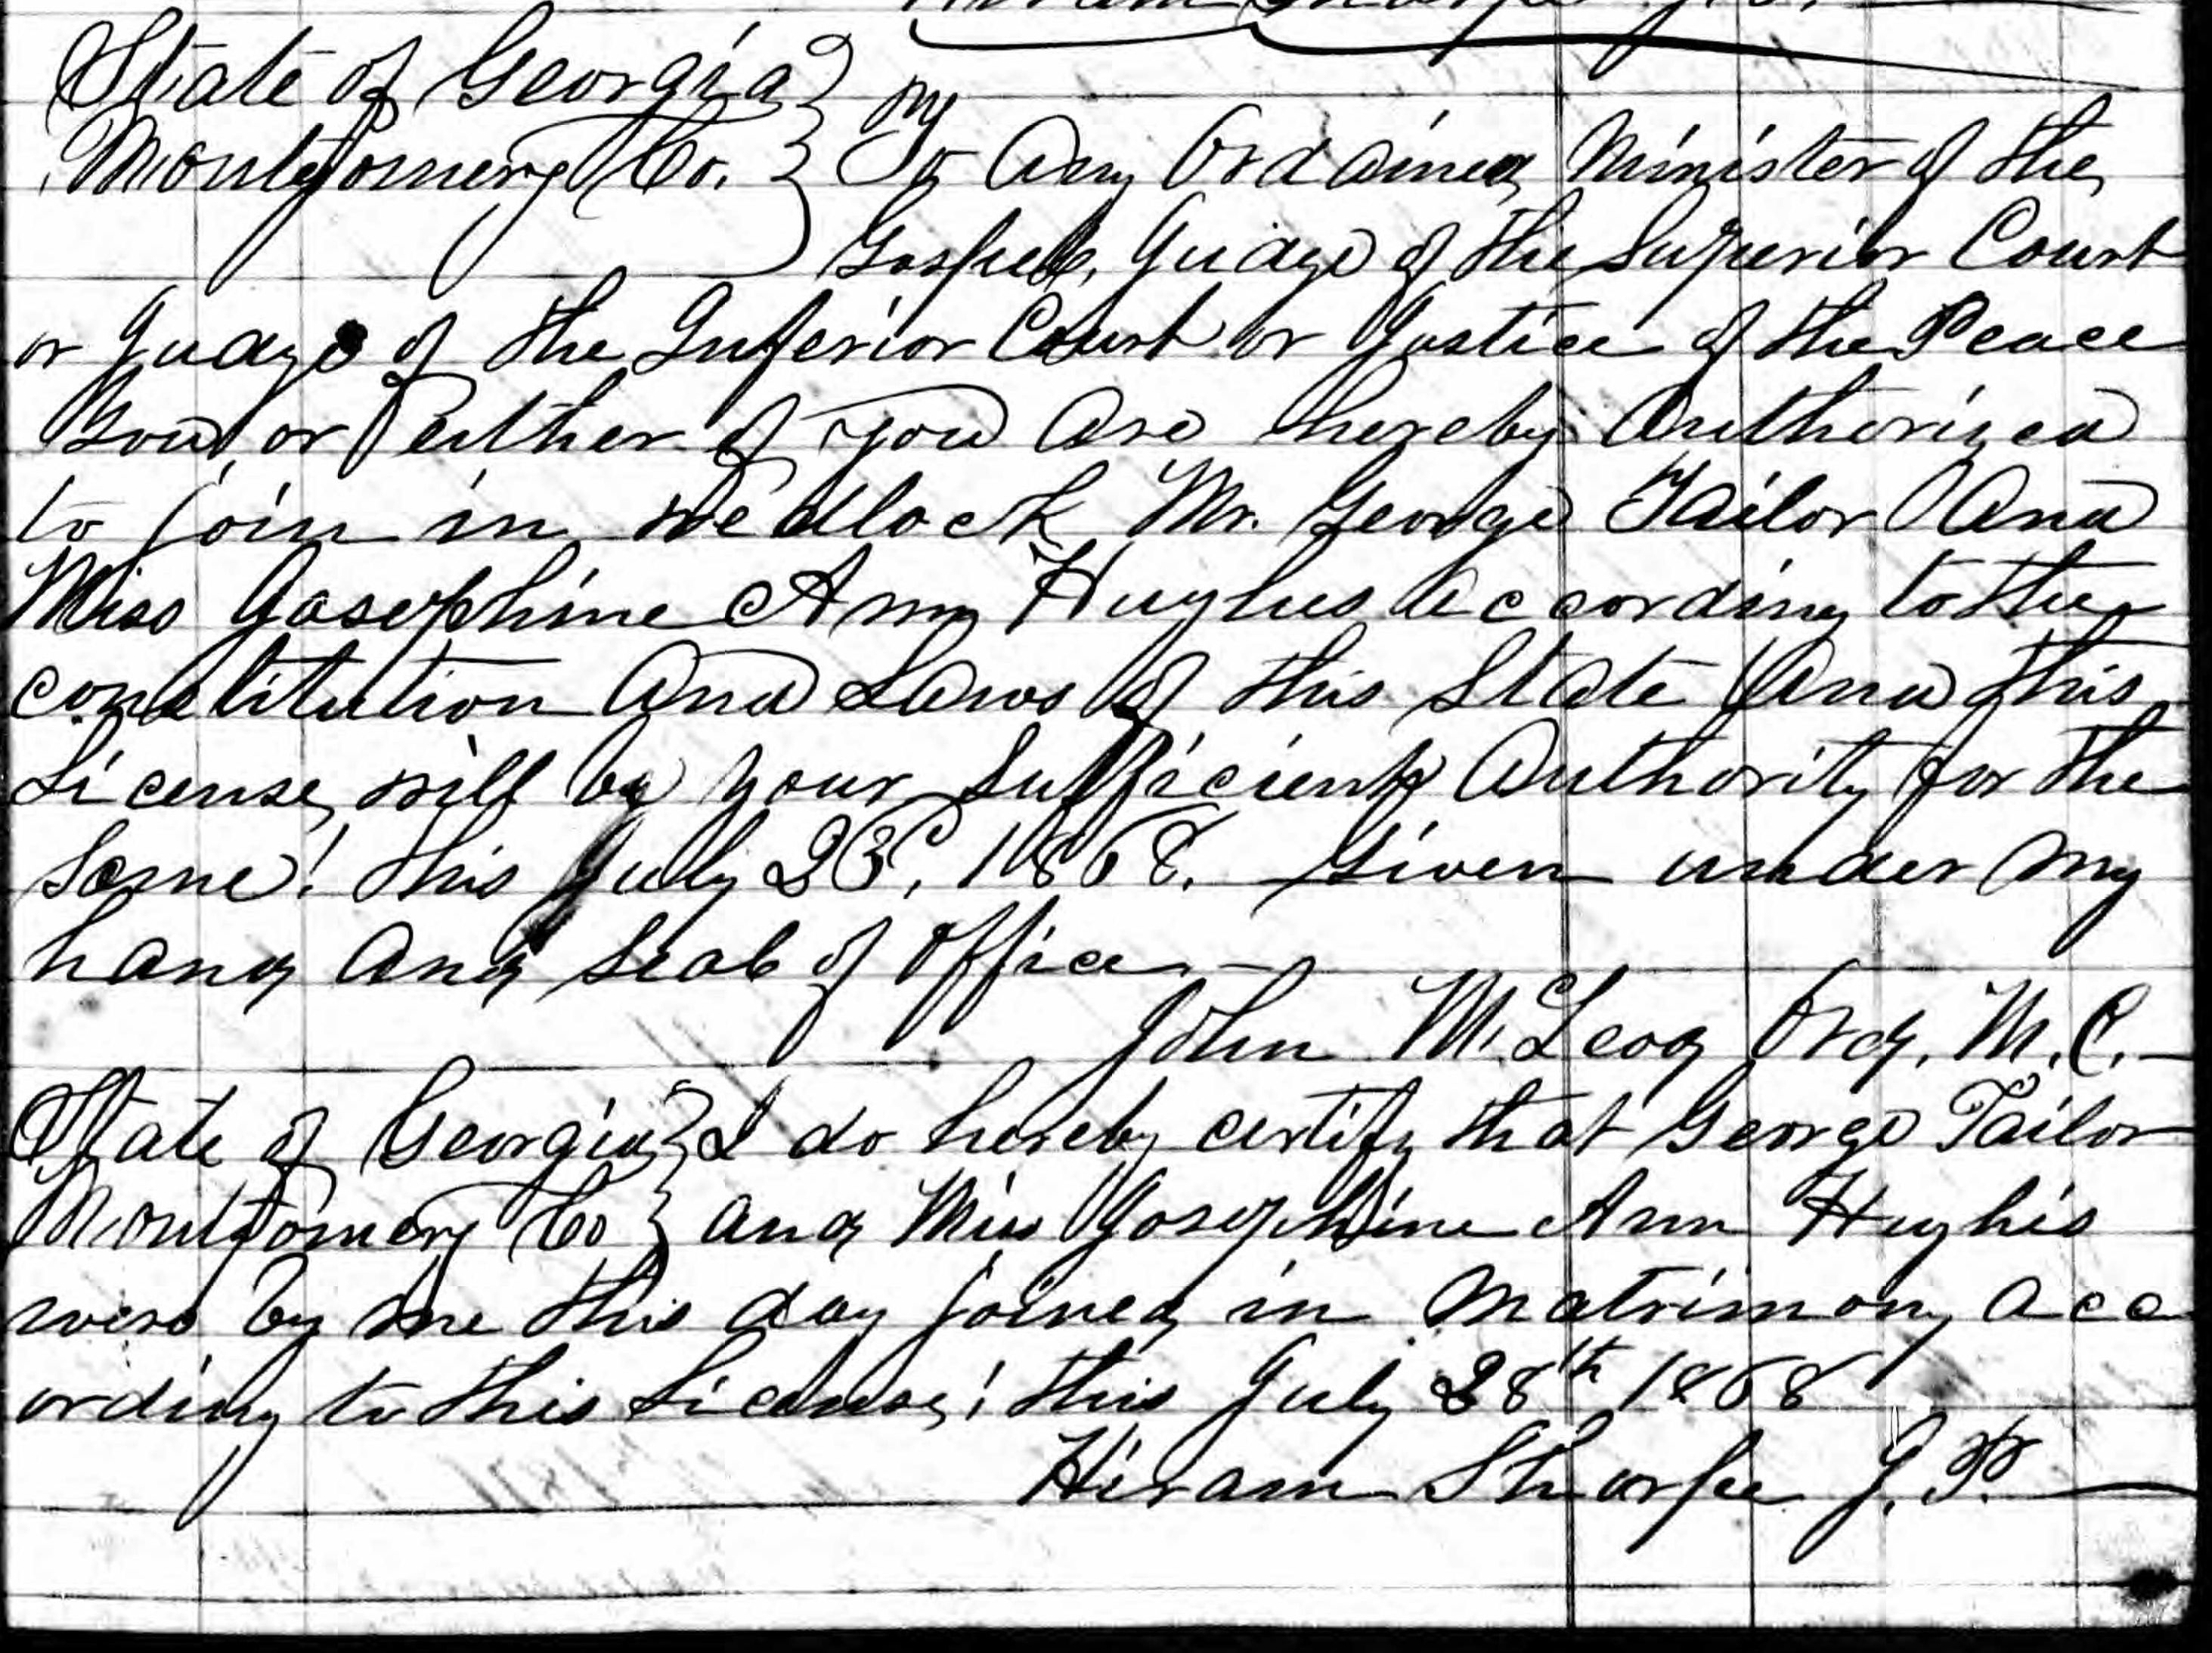 Hiram Sharpe J.P.
State of Georgia
Montgomery Co. To Any Ordained Minister of the
Gospel, Judge of the Superior Court
or Judge of the Inferior Court or Justice of the Peace
You, or either of you are hereby Authorized
to join in wedlock Mr. George Tailor And
Miss Josephine Ann Hughes According to the
constitution And Laws of this State And this
License will be your Sufficient Authority for the
Same! this July 23d, 1868. Given under my
hand And Seal of Office
John McLeod Ord. M.C.
State of Georgia I do hereby certify that George Tailor
Montgomery Co and Miss Josephine Ann Hughis
were by me this day joined in Matrimony Acc
ording to this License! this July 28th 1868
Hiram Sharpe J.P.